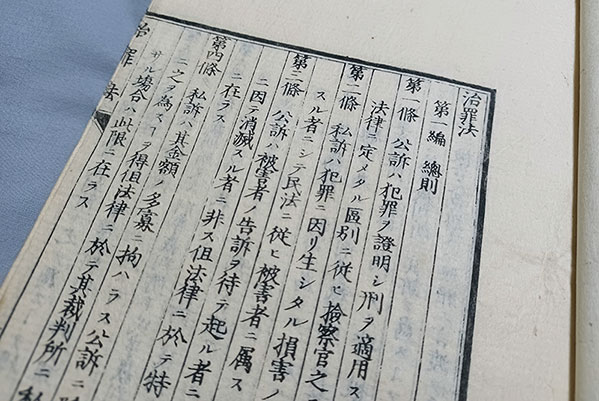 治罪法
第一編 總則
第一條 公訴ハ犯罪ヲ證明シ刑ヲ適用ス
法律ニ定メタル區別ニ從ヒ檢察官之
第二條 私訴ハ犯罪ニ因リ生シタル損害ノ
スル者ニシテ民法ニ從ヒ被害者ニ属ス
第三條 公訴ハ被害者ノ告訴ヲ待テ起ル者ニ
ニ因テ消滅スル者ニ非ス但法律ニ於テ特
ニ在ラス
第四條 私訴ハ其金額ノ多寡ニ拘ハラス公訴ニ
ニ之ヲ為スヿヲ得但法律ニ於テ其裁判所ニ私
サル塲合ハ此限ニ在ラス
治罪法